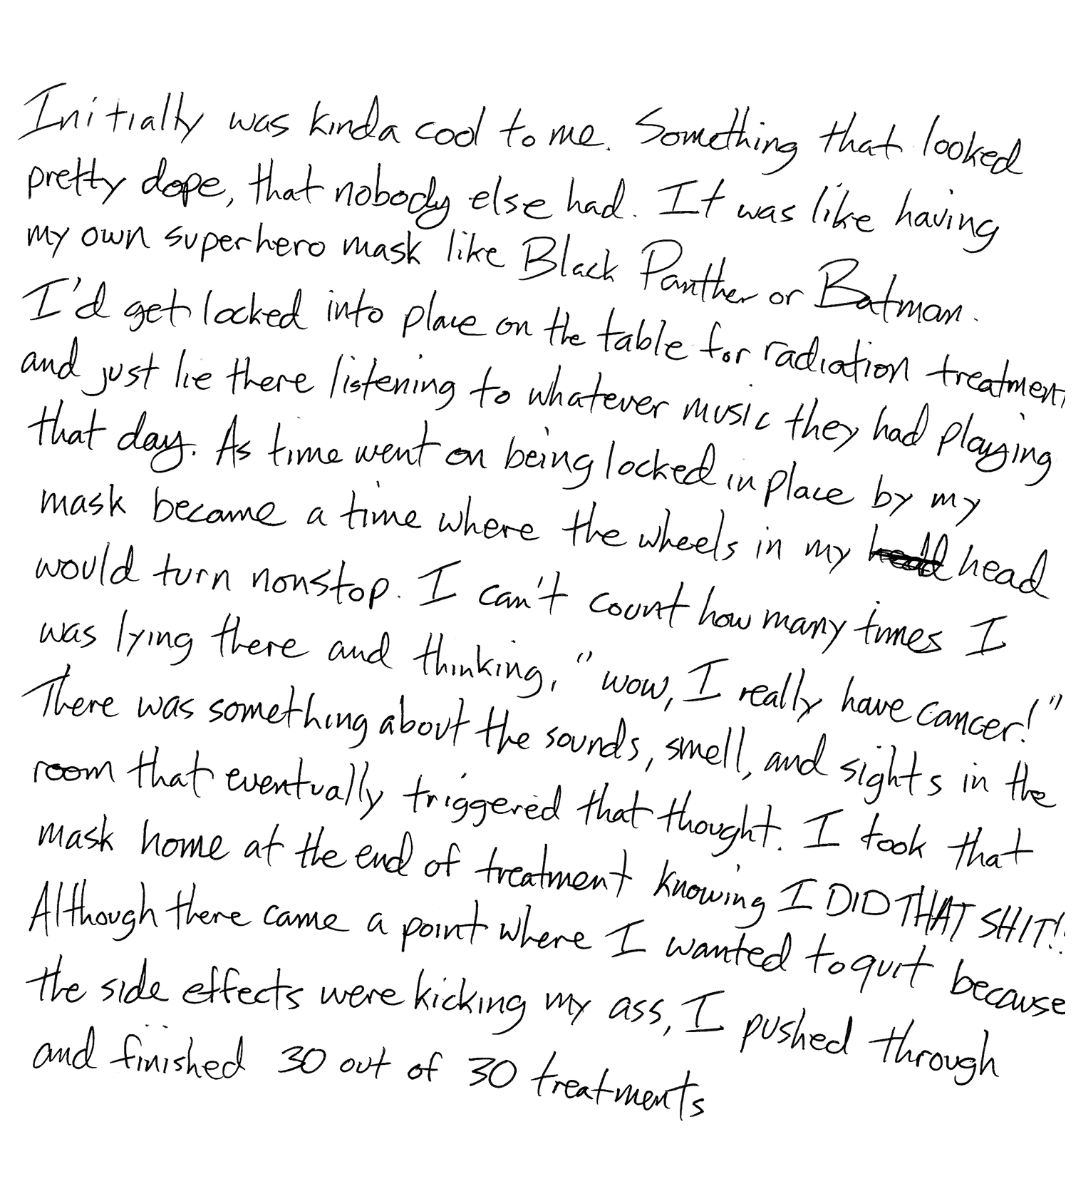 Initially was kinda cool to me. Something that looked
pretty dope, that nobody else had. It was like having
my own superhero mask like Black Panther or Batman.
I'd get locked into place on the table for radiation treatment
and just lie there listening to whatever music they had playing
that day. As time went on being locked in place by my
mask became a time where the wheels in my head
would turn nonstop. I can't count how many times I
was lying there and thinking, "wow, I really have cancer!"
There was something about the sounds, smell, and sights in the
room that eventually triggered that thought. I took that
mask home at the end of treatment knowing I DID THAT SHIT!!
Although there came a point where I wanted to quit because
the side effects were kicking my ass, I pushed through
and finished 30 out of 30 treatments